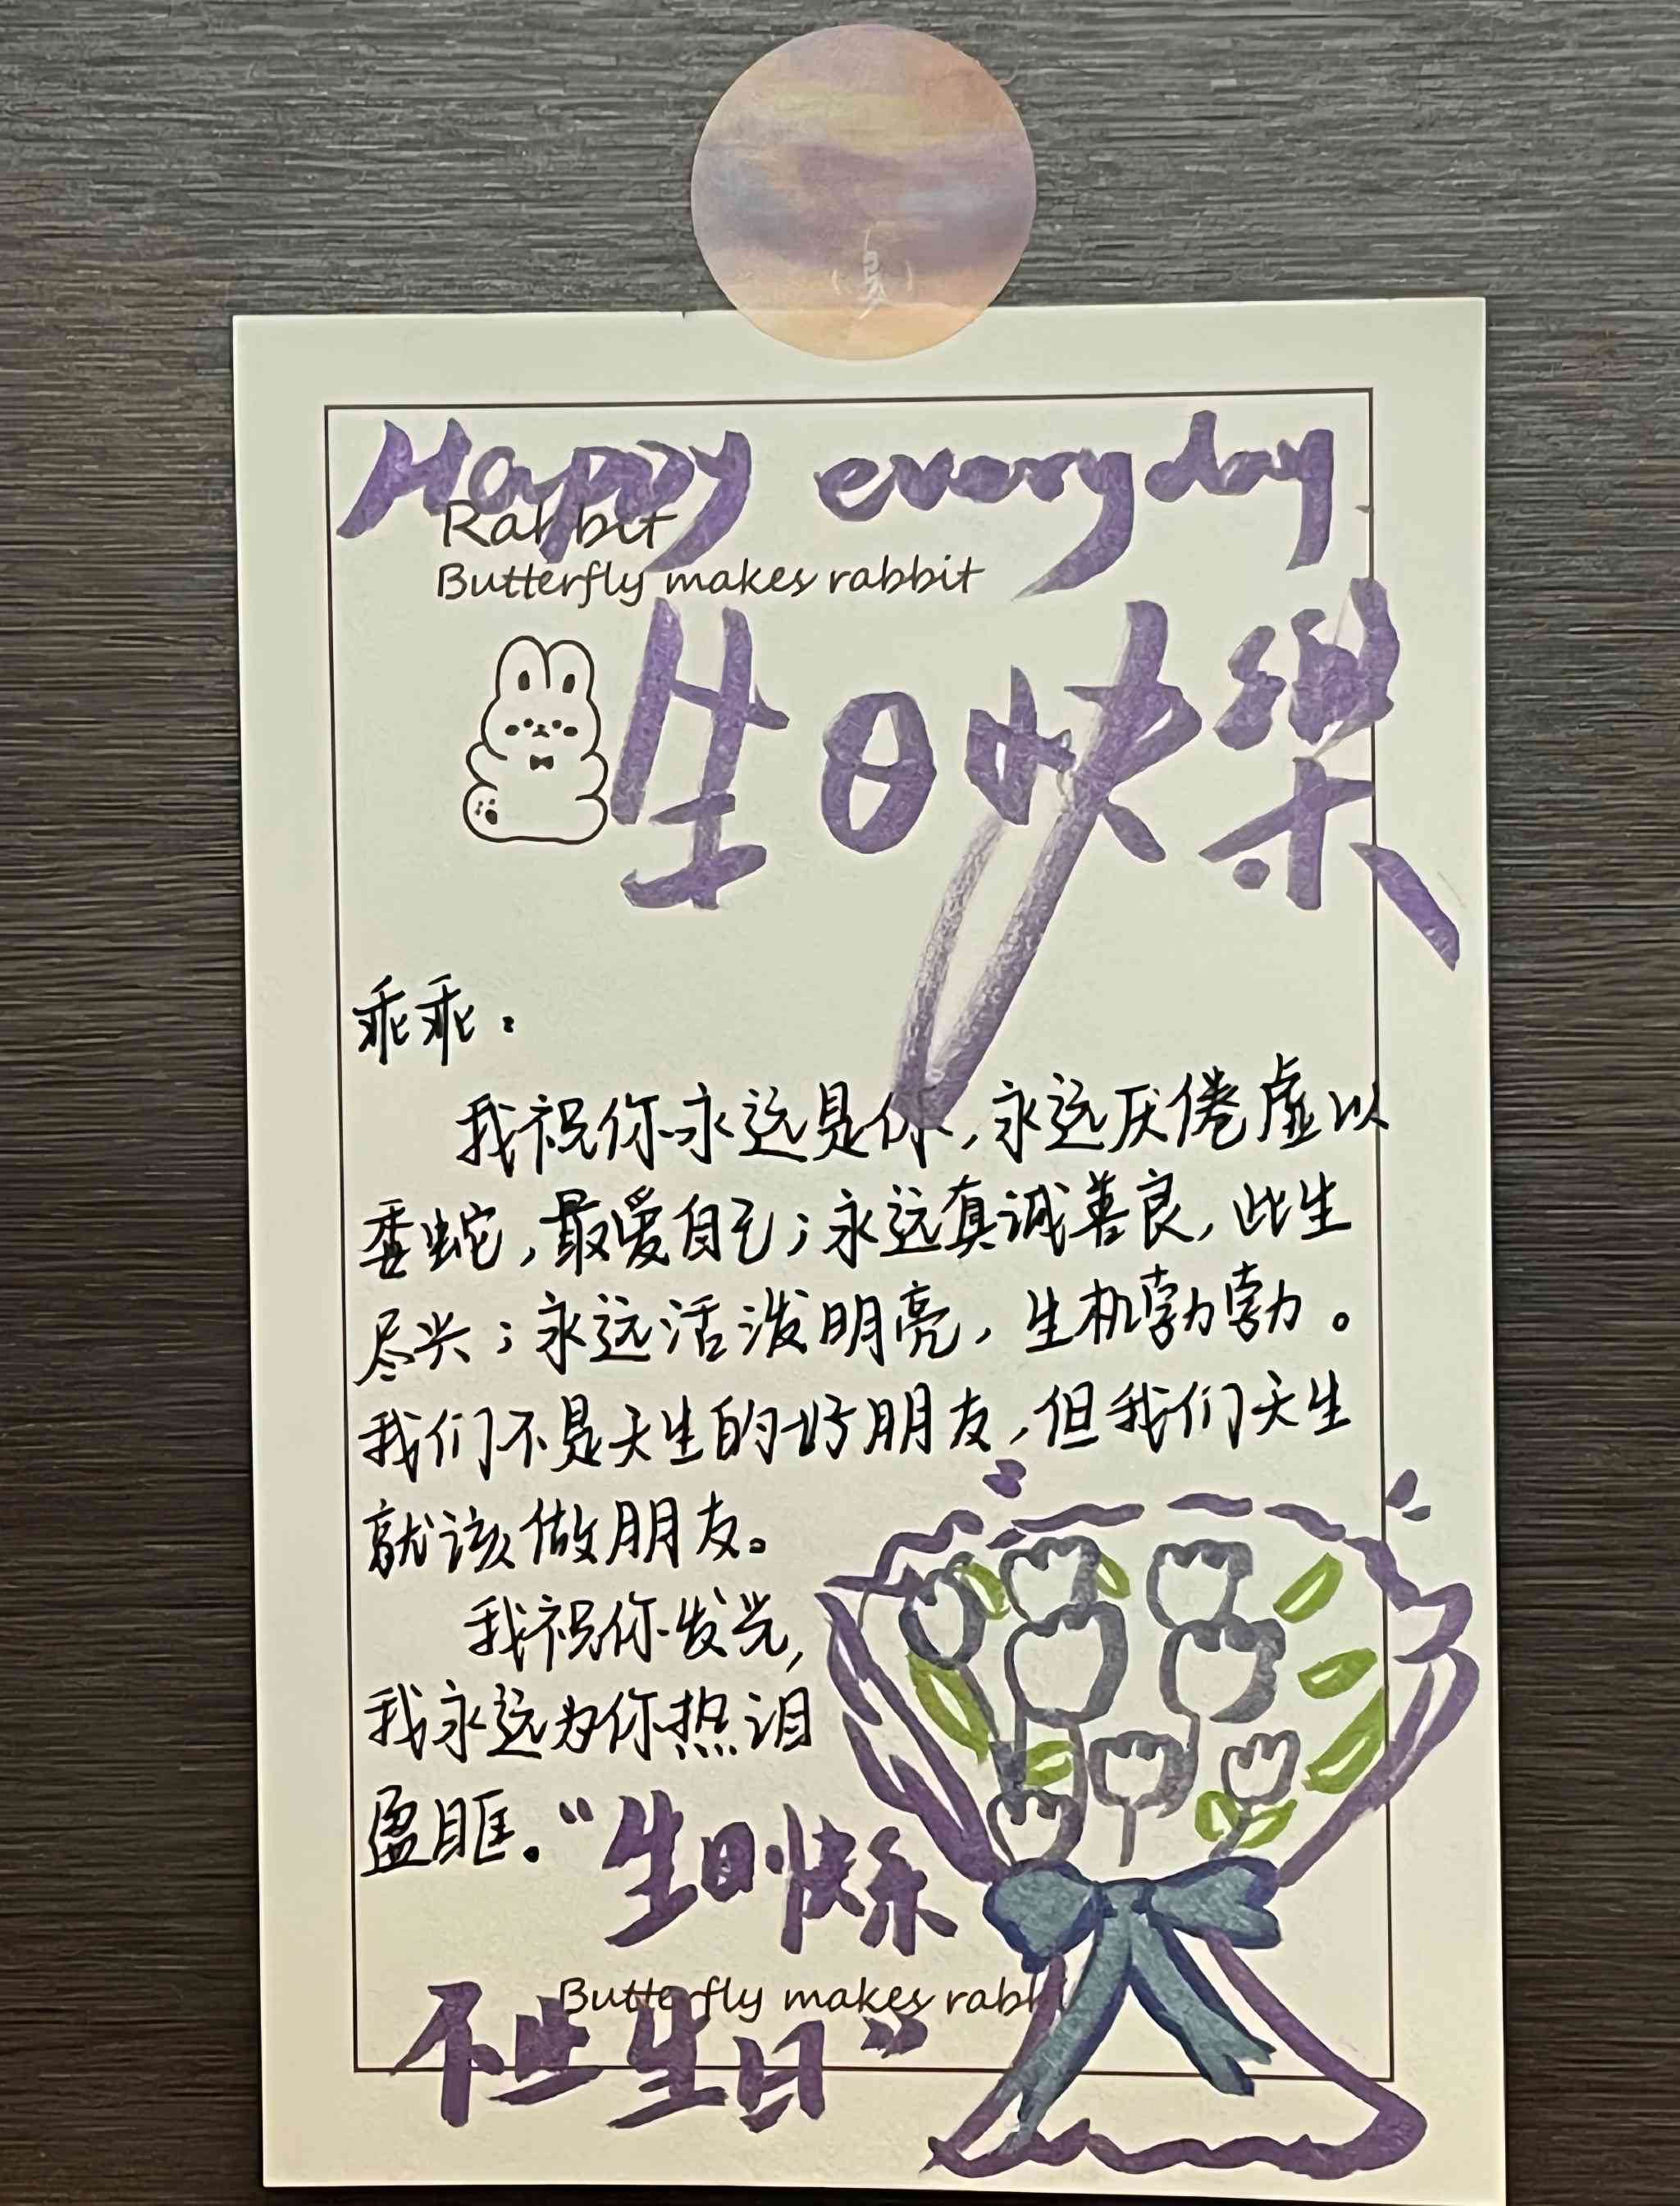 Happy everyday
Rabbit
Butterfly makes rabbit
生日快樂
乖乖：
我祝你永远是你，永远厌倦虚以
委蛇，最爱自己；永远真诚善良，此生
尽兴；永远活泼明亮，生机勃勃。
我们不是天生的好朋友，但我们天生
就该做朋友。
我祝你发光，
我永远为你热泪
盈眶。“生日快乐
Butterfly makes rabbi
不止生日”